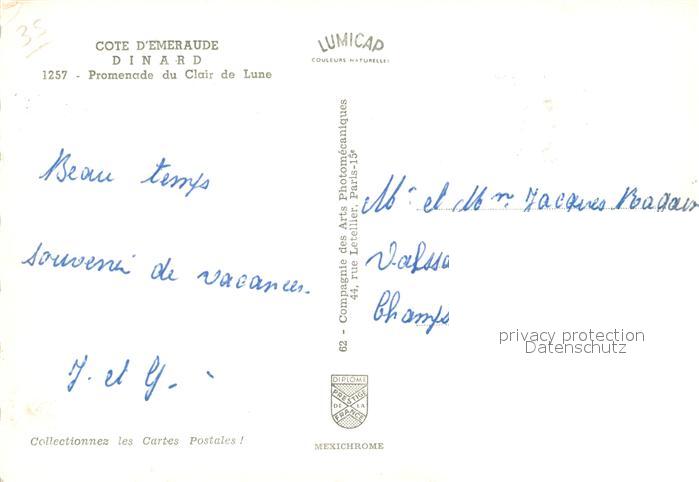 35
COTE D'EMERAUDE
DINARD
1257 - Promenade du Clair de Lune
LUMICAP
COULEURS NATURELLES
Beau temps
souvenir de vacances.
J. et G.
Collectionnez les Cartes Postales !
62 - Compagnie des Arts Photomécaniques
44, rue Letellier, Paris-15e
DIPLOME
PRESTIGE
DE LA
FRANCE
MEXICHROME
Mr et Mme Jacques
Champs
privacy protection
Datenschutz